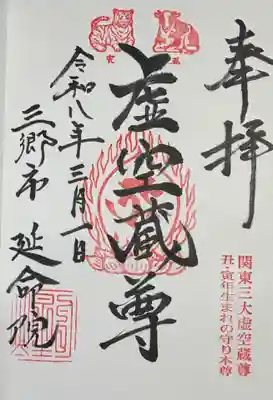 奉拝
関東三大虚空蔵尊
丑・寅年生まれの守り本尊
寅 丑
虚空蔵尊
令和八年三月一日
三郷市 延命院